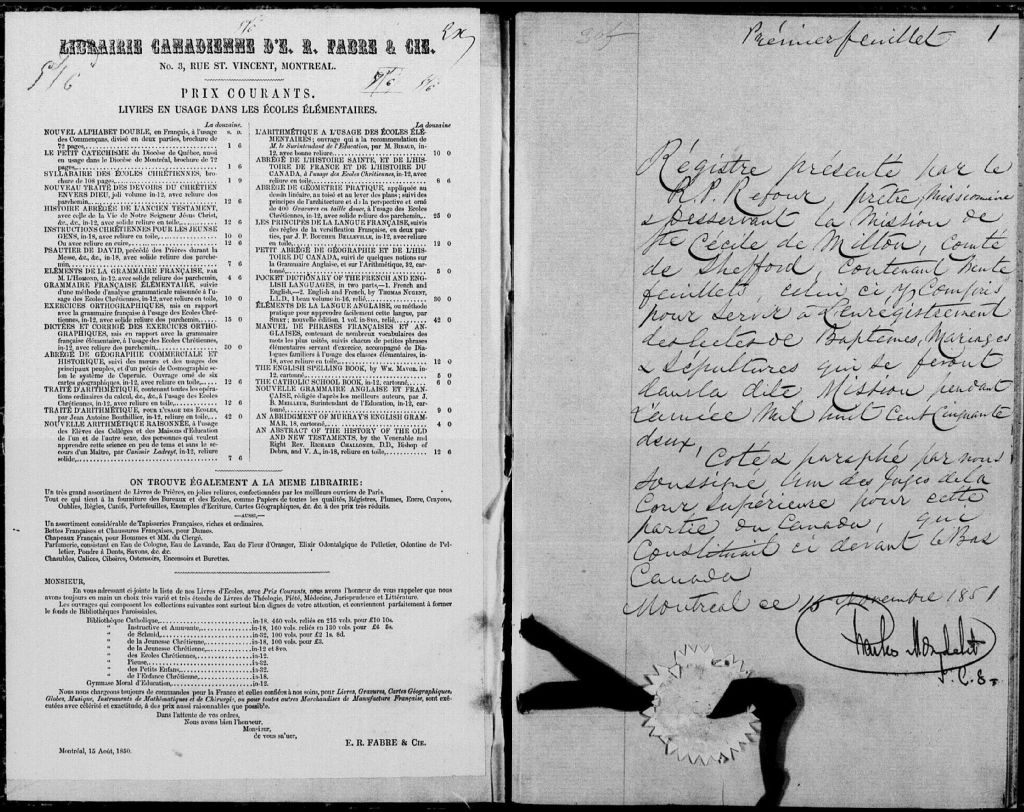 LIBRAIRIE CANADIENNE D'E. R. FABRE & CIE.
No. 3, RUE ST. VINCENT, MONTREAL.
PRIX COURANTS.
LIVRES EN USAGE DANS LES ÉCOLES ÉLÉMENTAIRES.
La douzaine.
s. D.
NOUVEL ALPHABET DOUBLE, en Français, à l'usage
des Commençans, divisé en deux parties, brochure de
72 pages, 1 6
LE PETIT CATECHISME du Diocèse de Québec, aussi
en usage dans le Diocèse de Montréal, brochure de 72
pages, 1 6
SYLLABAIRE DES ÉCOLES CHRÉTIENNES, bro-
chure de 108 pages, 1 9
NOUVEAU TRAITÉ DES DEVOIRS DU CHRÉTIEN
ENVERS DIEU, joli volume in-12, avec reliure des
parchemin, 12 6
HISTOIRE ABRÉGÉE DE L'ANCIEN TESTAMENT,
avec celle de la Vie de Notre Seigneur Jésus Christ,
&c., &c., in-12, avec solide reliure en toile, 12 6
INSTRUCTIONS CHRÉTIENNES POUR LES JEUNES
GENS, in-18, avec reliure en toile, 10 0
Ou avec reliure en cuire, 12 6
PSAUTIER DE DAVID, précédé des Prières durant la
Messe, &c., &c., in-18, avec solide reliure des parche-
min, 7 6
ELÉMENTS DE LA GRAMMAIRE FRANÇAISE, PAR
M. L'HOMOND, in-12, avec solide reliure des parchemin, 4 6
GRAMMAIRE FRANÇAISE ÉLÉMENTAIRE, suivie
d'une méthode d'analyse grammaticale raisonnée à l'u-
sage des Ecoles Chrétiennes, in-12, avec reliure en toile, 10 0
EXERCICES ORTHOGRAPHIQUES, mis en rapport
avec la grammaire française à l'usage des Ecoles Chré-
tiennes, in-12, avec reliure des parchemin, 15 0
DICTÉES ET CORRIGÉ DES EXERCICES ORTHO-
GRAPHIQUES, mis en rapport avec la grammaire
française élémentaire, à l'usage des Ecoles Chrétiennes,
in-12, avec reliure des parchemin, 30 0
ABRÉGÉ DE GÉOGRAPHIE COMMERCIALE ET
HISTORIQUE, suivi des mœurs et des usages des
principaux peuples, et d'un précis de Cosmographie se-
lon le système de Copernic. Ouvrage orné de six
cartes géographiques, in-12, avec reliure en toile, 12 6
TRAITÉ D'ARITHMÉTIQUE, contenant toutes les opéra-
tions ordinaires du calcul, &c., &c., à l'usage des Ecoles
Chrétiennes, in-12, avec reliure en toile, 12 6
TRAITÉ D'ARITHMÉTIQUE, POUR L'USAGE DES ECOLES,
par Jean Antoine Bouthillier, in-12, reliure en toile, 42 0
NOUVELLE ARITHMÉTIQUE RAISONNÉE, à l'usage
des Elèves des Collèges et des Maisons d'Education
de l'un et de l'autre sexe, des personnes qui veulent
apprendre cette science en peu de tems et sans le se-
cours d'un Maître, par Casimir Ladreyt, in-12, reliure
solide, 7 6
La douzaine.
L'ARITHMÉTIQUE A L'USAGE DES ÉCOLES ÉLÉ-
MENTAIRES; ouvrage qui a la recommendation de
M. le Surintendant de l'Education, par M. BIBAUD, in-
12, avec bonne reliure, 10 0
ABRÉGÉ DE L'HISTOIRE SAINTE, ET DE L'HIS-
TOIRE DE FRANCE ET DE L'HISTOIRE DU
CANADA, à l'usage des Ecoles Chrétiennes, in-12, avec
reliure en toile, 8 6
ABRÉGÉ DE GÉOMETRIE PRATIQUE, appliquée au
dessin linéaire, au toisé et au lever des plans; suivi des
principes de l'architecture et de la perspective et orné
de 400 Gravures en taille douce, à l'usage des Ecoles
Chrétiennes, in-12, avec solide reliure des parchemin, 25 0
LES PRINCIPES DE LA LANGUE FRANÇAISE, suivis
des règles de la versification Française, en deux par-
ties, par J. P. BOUCHER BELLEVILLE, in-12, avec reliure
en toile, 12 0
PETIT ABRÉGÉ DE GÉOGRAPHIE ET DE L'HIS-
TOIRE DU CANADA, suivi de quelques notions sur
la Grammaire Anglaise, et sur l'Arithmétique, 32, car-
tonné, 5 0
POCKET DICTIONARY OF THE FRENCH AND ENG-
LISH LANGUAGES, in two parts,—1. French and
English,—2. English and French, by THOMAS NUGENT,
L.L.D., 1 beau volume in-16, relié, 30 0
ÉLÉMENTS DE LA LANGUE ANGLAISE, ou méthode
pratique pour apprendre facilement cette langue, par
SIRET; nouvelle édition, 1 vol. in-8vo, relié, 42 0
MANUEL DE PHRASES FRANÇAISES ET AN-
GLAISES, contenant de nombreux vocabulaires des
mots les plus usités, suivis chacun de petites phrases
élémentaires servant d'exercice, accompagné de Dia-
logues familiers à l'usage des classes élémentaires, in-
18, avec reliure en toile, 12 0
THE ENGLISH SPELLING BOOK, by WM. MAVOR, in-
12, cartonné, 5 0
THE CATHOLIC SCHOOL BOOK, in-12, cartonné, 6 0
NOUVELLE GRAMMAIRE ANGLAISE ET FRAN-
ÇAISE, rédigée d'après les meilleurs auteurs, par J.
B. MEILLEUR, Surintendant de l'Education, in-12, car-
tonné, 9 0
AN ABRIDGMENT OF MURRAY'S ENGLISH GRAM-
MAR, 18, cartonné, 4 0
AN ABSTRACT OF THE HISTORY OF THE OLD
AND NEW TESTAMENTS, by the Venerable and
Right Rev. RICHARD CHALLONER, D.D., Bishop of
Debra, and V. A., in-18, reliure en toile, 12 6
ON TROUVE ÉGALEMENT A LA MEME LIBRAIRIE:
Un très grand assortiment de Livres de Prières, en jolies reliures, confectionnées par les meilleurs ouvriers de Paris.
Tout ce qui tient à la fourniture des Bureaux et des Ecoles, comme Papiers de toutes les qualités, Régistres, Plumes, Encre, Crayons,
Oublies, Règles, Canifs, Portefeuilles, Exemples d'Ecriture, Cartes Géographiques, &c. &c. à des prix très réduits.
—AUSSI,—
Un assortiment considérable de Tapisseries Françaises, riches et ordinaires.
Bottes Françaises et Chaussures Françaises, pour Dames.
Chapeaux Français, pour Hommes et MM. du Clergé.
Parfumerie, consistant en Eau de Cologne, Eau de Lavande, Eau de Fleur d'Oranger, Elixir Odontalgique de Pelletier, Odontine de Pel-
letier, Poudre à Dents, Savons, &c. &c.
Chasubles, Calices, Ciboires, Ostensoirs, Encensoirs et Burettes.
MONSIEUR,
En vous adressant ci-jointe la liste de nos Livres d'Ecoles, avec Prix Courants, nous avons l'honneur de vous rappeler que nous
avons toujours en main un choix très varié et très étendu de Livres de Théologie, Piété, Médecine, Jurisprudence et Littérature.
Les ouvrages qui composent les collections suivantes sont surtout bien dignes de votre attention, et conviennent parfaitement à former
le fonds de Bibliothèques Paroissiales.
Bibliothèque Catholique, in-18, 460 vols. reliés en 215 vols. pour £10 10s.
" Instructive et Amusante, in-18, 160 vols. reliés en 130 vols. pour £6 5s.
" de Schmid, in-32, 100 vols. pour £2 1s. 8d.
" de la Jeunesse Chrétienne, in-18, 100 vols. pour £3.
" de la Jeunesse Chrétienne, in-12 et 8vo.
" des Ecoles Chrétiennes, in-12.
" Pieuse, in-32.
" des Petits Enfans, in-32.
" de l'Enfance Chrétienne, in-18.
Gymnase Moral d'Education, in-12.
Nous nous chargeons toujours de commandes pour la France et celles confiées à nos soins, pour Livres, Gravures, Cartes Géographiques,
Globes, Musique, Instruments de Mathématiques et de Chirurgie, ou pour toutes autres Marchandises de Manufacture Française, sont exé-
cutées avec célérité et exactitude, à des prix aussi raisonnables que possible.
Dans l'attente de vos ordres,
Nous avons bien l'honneur,
Monsieur,
de vous saluer,
E. R. FABRE & CIE.
Montréal, 15 Août, 1850.
Prémier feuillet 1
Régistre présenté par le
R. P. Refour, prêtre, Missionnaire
& Desservant la Mission de
Ste Cécile de Milton, Comté
de Shefford, Contenant trente
feuillets celui ci y Compris
pour servir à L'enrégistrement
des Actes de Baptêmes, Mariages
& Sépultures qui se feront
dans la dite Mission pendant
L'année Mil huit Cent Cinquante
deux, Coté & paraphé par nous
Soussigné L'un des Juges de la
Cour Supérieure pour cette
partie du Canada, qui
Constituait ci devant le Bas
Canada
Montréal ce 15 Novembre 1851
Charles Mondelet
J. C. S.